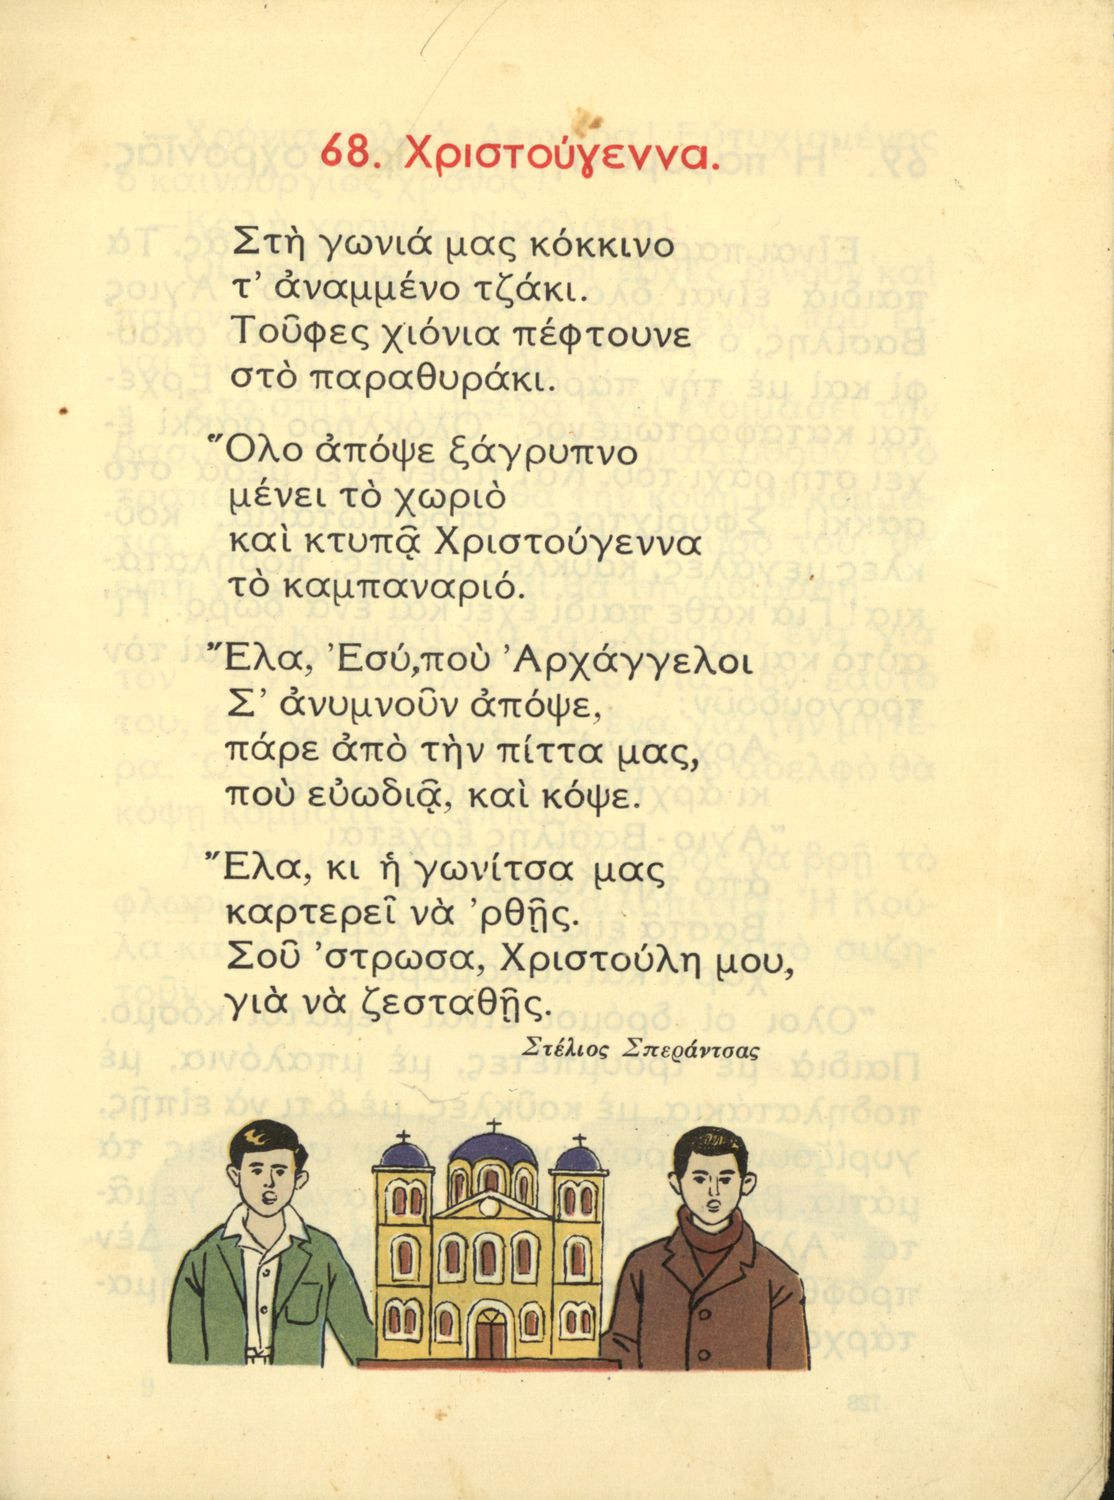 68. Χριστούγεννα.
Στὴ γωνιά μας κόκκινο
τ' ἀναμμένο τζάκι.
Τοῦφες χιόνια πέφτουνε
στὸ παραθυράκι.
Ὅλο ἀπόψε ξάγρυπνο
μένει τὸ χωριὸ
καὶ κτυπᾷ Χριστούγεννα
τὸ καμπαναριό.
Ἔλα, Ἐσύ, ποὺ Ἀρχάγγελοι
Σ' ἀνυμνοῦν ἀπόψε,
πάρε ἀπὸ τὴν πίττα μας,
ποὺ εὐωδιᾷ, καὶ κόψε.
Ἔλα, κι ἡ γωνίτσα μας
καρτερεῖ νὰ 'ρθῇς.
Σοῦ 'στρωσα, Χριστούλη μου,
γιὰ νὰ ζεσταθῇς.
Στέλιος Σπεράντσας